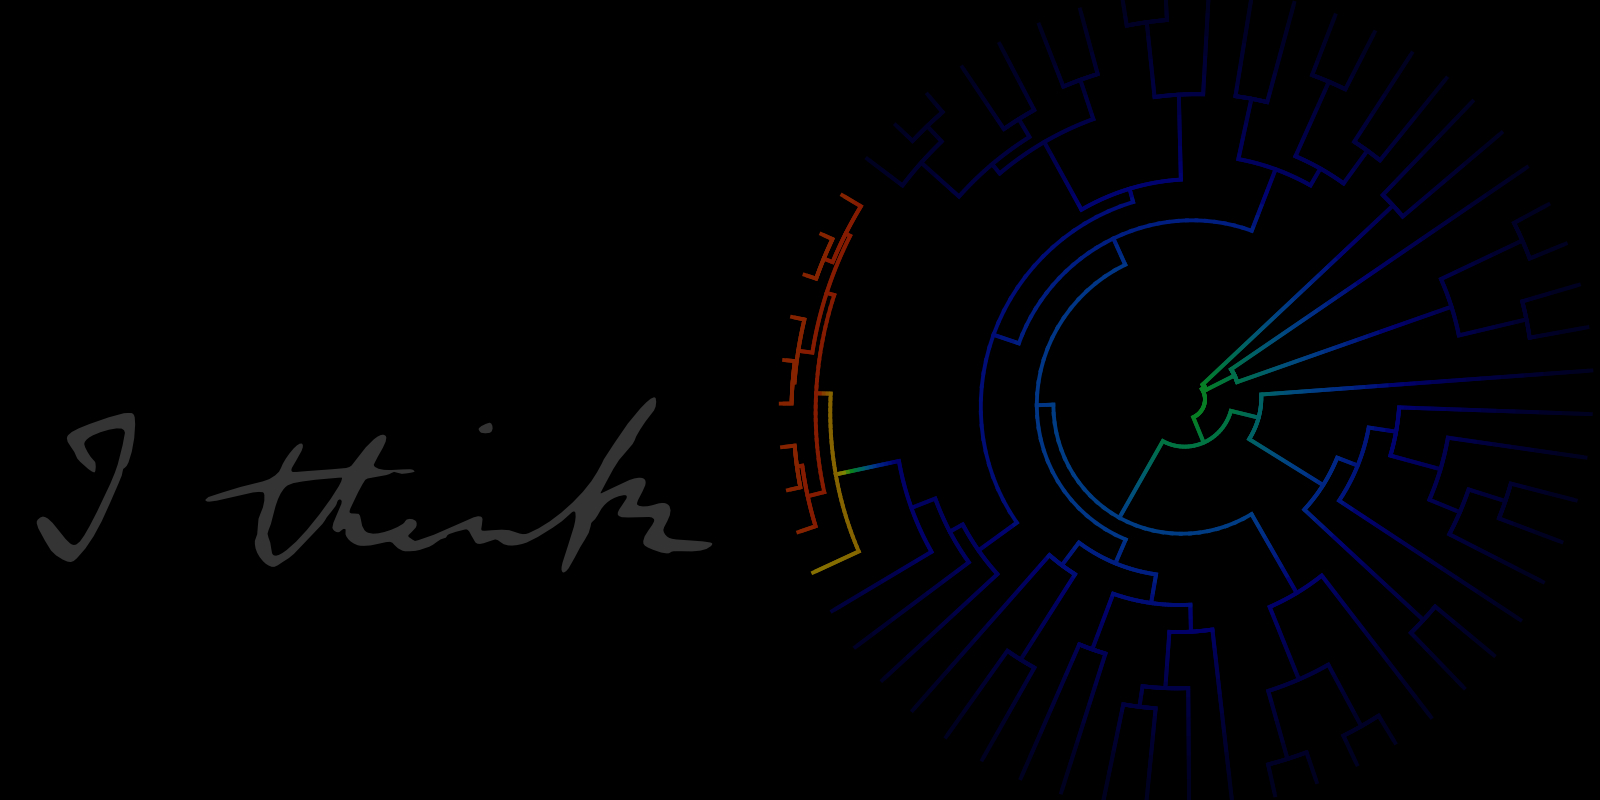 I think